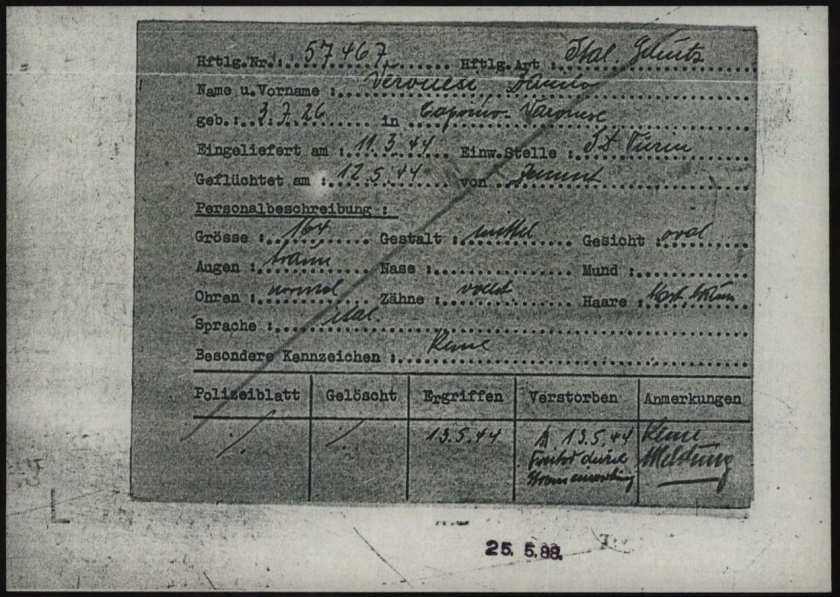 Hftlg.Nr.: 57467 Hftlg.Art : Ital. Schutz
Name u.Vorname : Veronesi Danilo
geb.: 3.7.26 in
Eingeliefert am : 11.3.44 Einw.Stelle : S.D. Turin
Geflüchtet am : 12.5.44 von
Personalbeschreibung :
Grösse : 164 Gestalt : mittel Gesicht : oval
Augen : braun Nase : Mund :
Ohren : normal Zähne : vollst Haare :
Sprache : ital.
Besondere Kennzeichen : Keine
Polizeiblatt Gelöscht Ergriffen Verstorben Anmerkungen
·/· ·/· 13.5.44 13.5.44 Keine
durch Meldung
25. 5. 88.